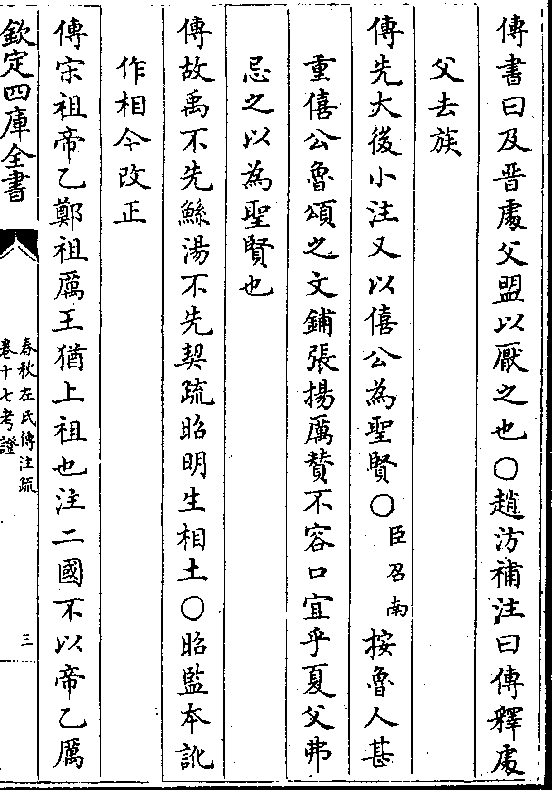 傳書曰及晋處父盟以厭之也〇趙汸補注曰傳釋處
父去族
傳先大後小注又以僖公為聖賢〇臣召南按魯人甚
重僖公魯頌之文鋪張揚厲賛不容口宜乎夏父弗
忌之以為聖賢也
傳故禹不先鯀湯不先契疏昭明生相土〇昭監本訛
作相今改正
傳宋祖帝乙鄭祖厲王猶上祖也注二國不以帝乙厲
欽定四庫全書
春秋左氏傳注疏
卷十七考證
三